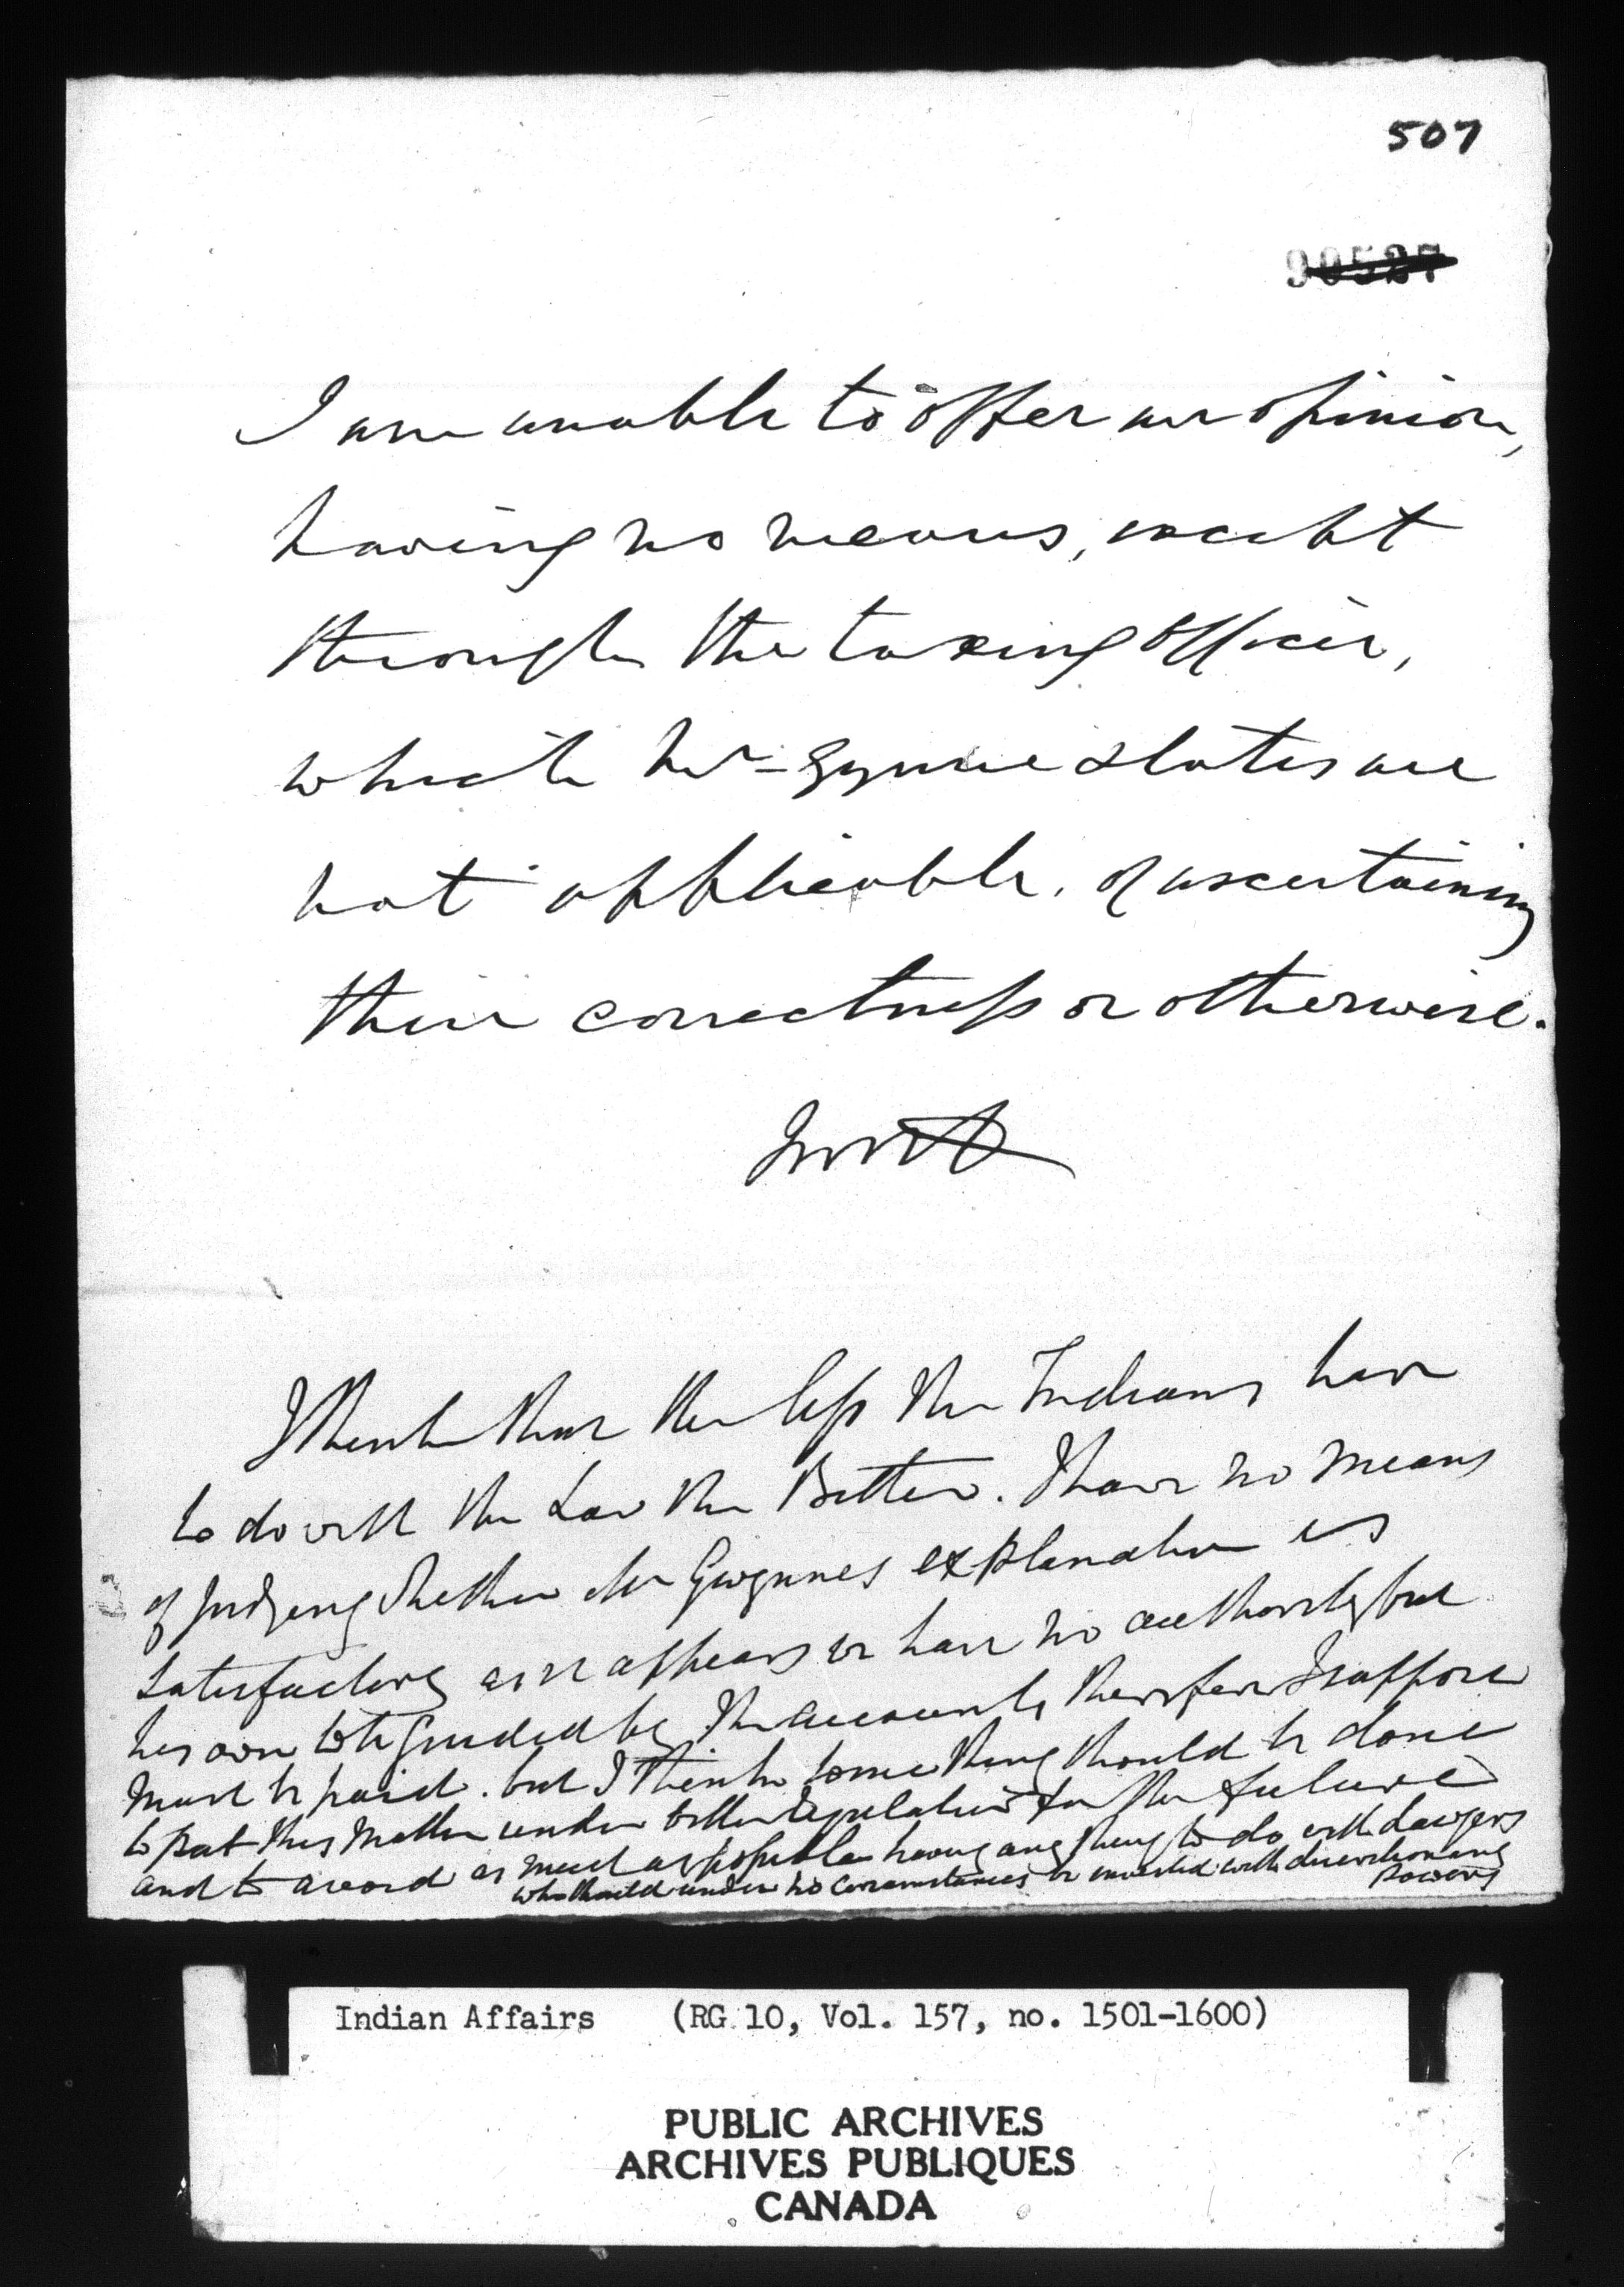 507
90527
I am unable to offer an opinion,
having no means, except
through the taxing officer,
which Mr Gynne states are
not applicable, of ascertaining
their correctness or otherwise.
I think that the less the Indians have
to do with the Law the Better. I have no means
of judging whether Mr Gwynnes explanation is
satisfactory as it appears we have no authority but
his own to be guided by The accounts therefore I suppose
must be paid. but I think something should be done
to put this matter under better regulation for the future
and to avoid as much as possible having any thing to do with Lawyers
who should under no circumstances be invested with discretionary
powers
Indian Affairs (RG 10, Vol. 157, no. 1501-1600)
PUBLIC ARCHIVES
ARCHIVES PUBLIQUES
CANADA